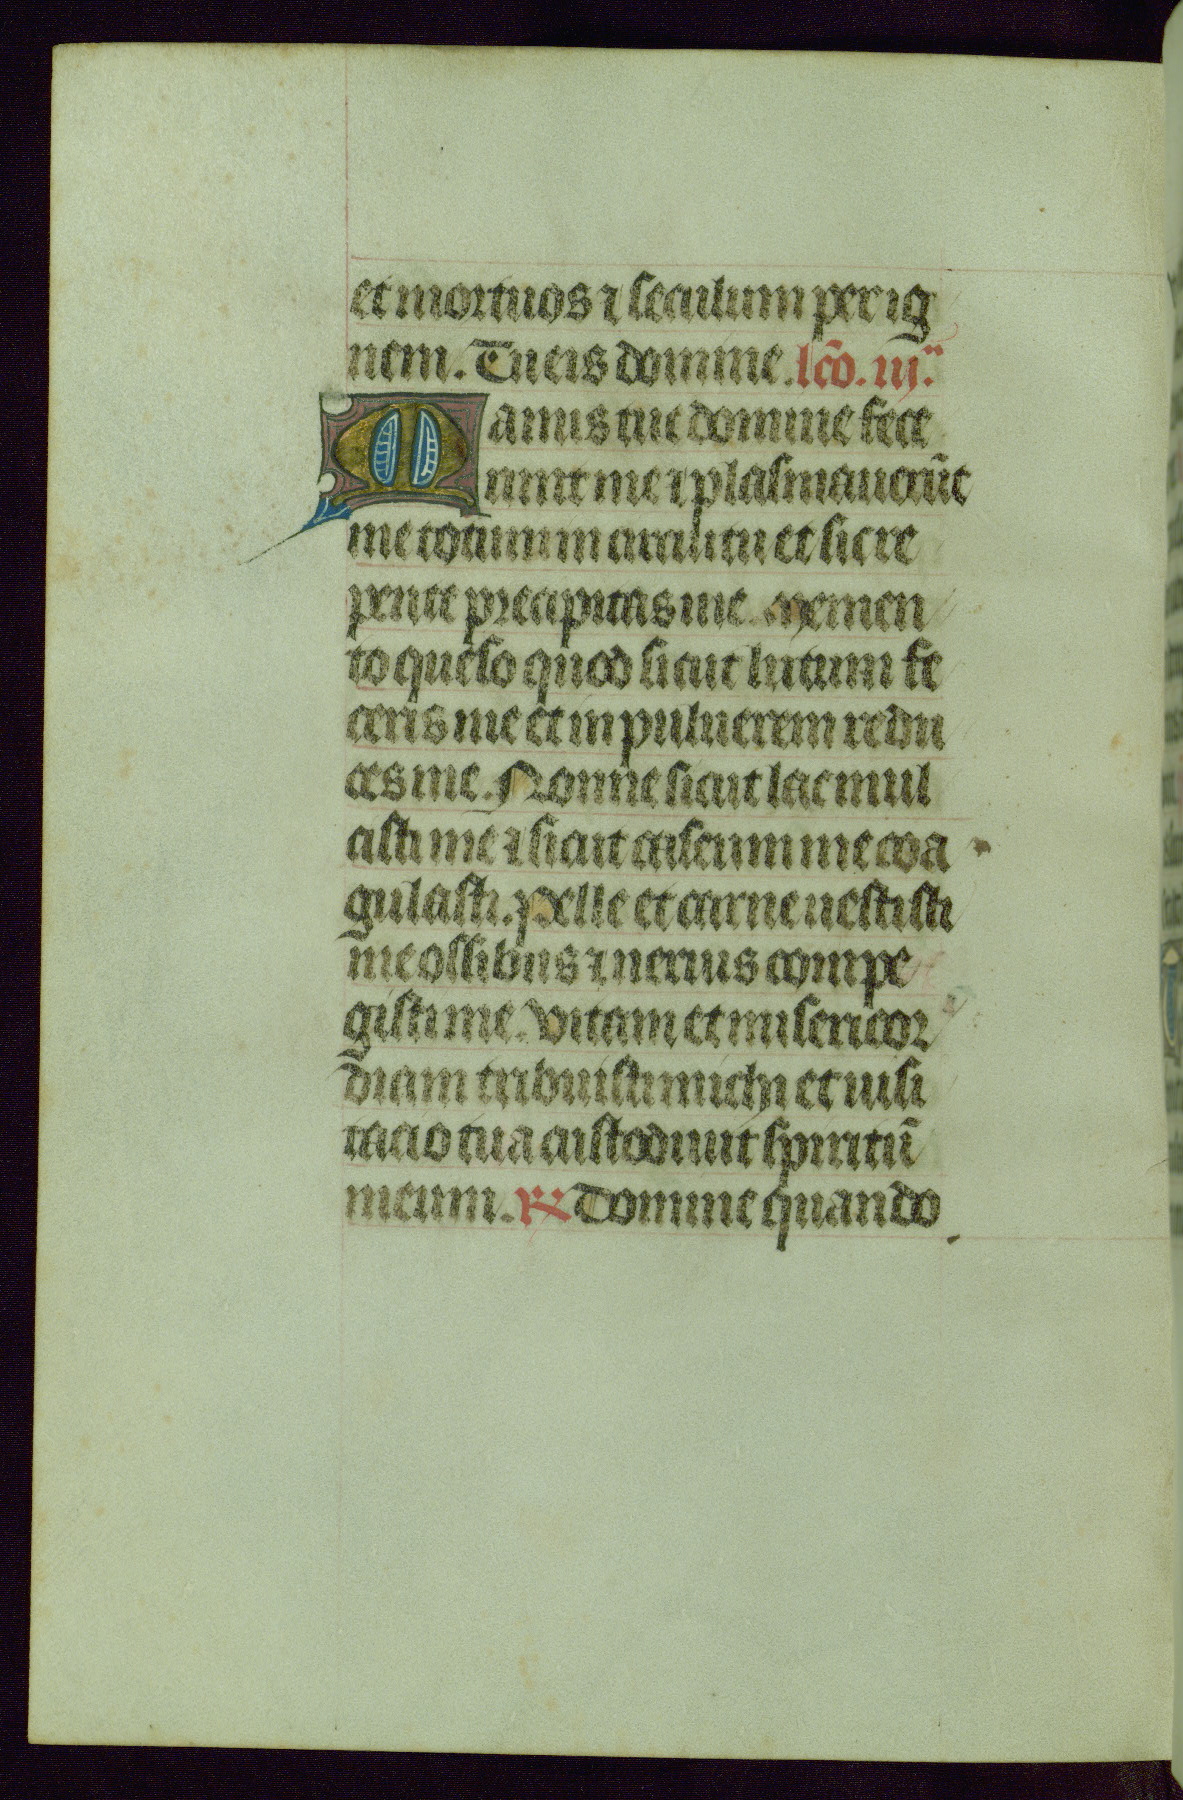 et mortuos ⁊ seculum per ig
nem. Tu eis domine. lcō. iij.ͣ
Manus tue domine fece
runt me ⁊ plasmauerūt
me totum in circuitu et sic re
pente precipitas me. Memen
to queso quod sicut lutum fe
ceris me et in puluerem redu
ces me. Nonne sicut lac mul
cisti me ⁊ sicut caseum me coa
gulasti. Pelle et carne uestisti
me ossibus ⁊ neruis compe
gisti me. Vitam et misericor
diam tribuisti michi et uisi
tacio tua custodiuit spiritū
meum. ℟ Domine quando